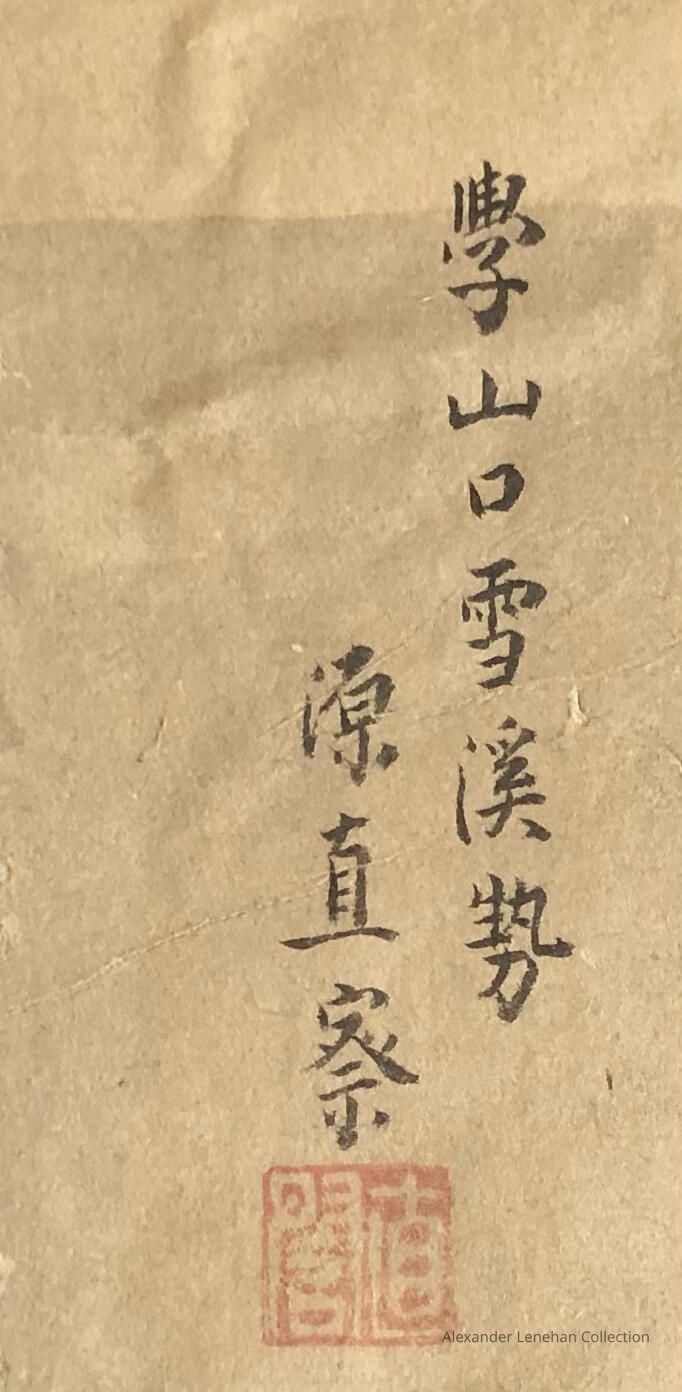 學山口雪溪勢
源直察
Alexander Lenehan Collection